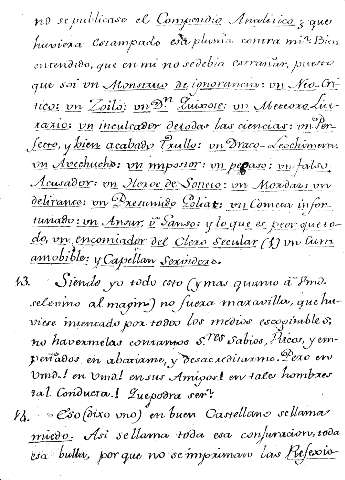 no se publicase el Compendio Analitico; que
huviera estampado esta pluma contra mi? Bien
entendido, que en mi no se debio estrañar, puesto
que soi un Monstruo de ignorancia: un Neo-Cri-
tico: un Zoilo: un Dn Quixote: un Meteoro Lite-
rario: un inculcador de todas las ciencias: un Per-
fecto, y bien acabado Trullo: un Draco-
un Avechucho: un impostor: un pegaso: un falso
Acusador: un Heroe de Soneto: un Mordaz: un
delirante: un Presumido Goliat: un Cometa infor-
tunado: un Ansur, ò Sanso: y lo que es peor que to-
do, un encomiador del Clero Secular (1) un
y Capellan
13. Siendo yo todo esto (y mas quanto à Vmd.
se le vino al magin) no fuera maravilla, que hu-
viese intentado por todos los medios escogitables,
no havermelas con tantos Sres Sabios, Ricos, y em-
peñados en abatirme, y desacreditarme. Pero en
Vmd.! en Vmd.! en sus Amigos! en tales hombres
tal Conducta! Que podra ser?
14. Eso (dixo uno) en buen Castellano se llama
miedo. Asi se llama toda esa conjuracion, toda
esa bulla, porque no se impriman las Reflexio-